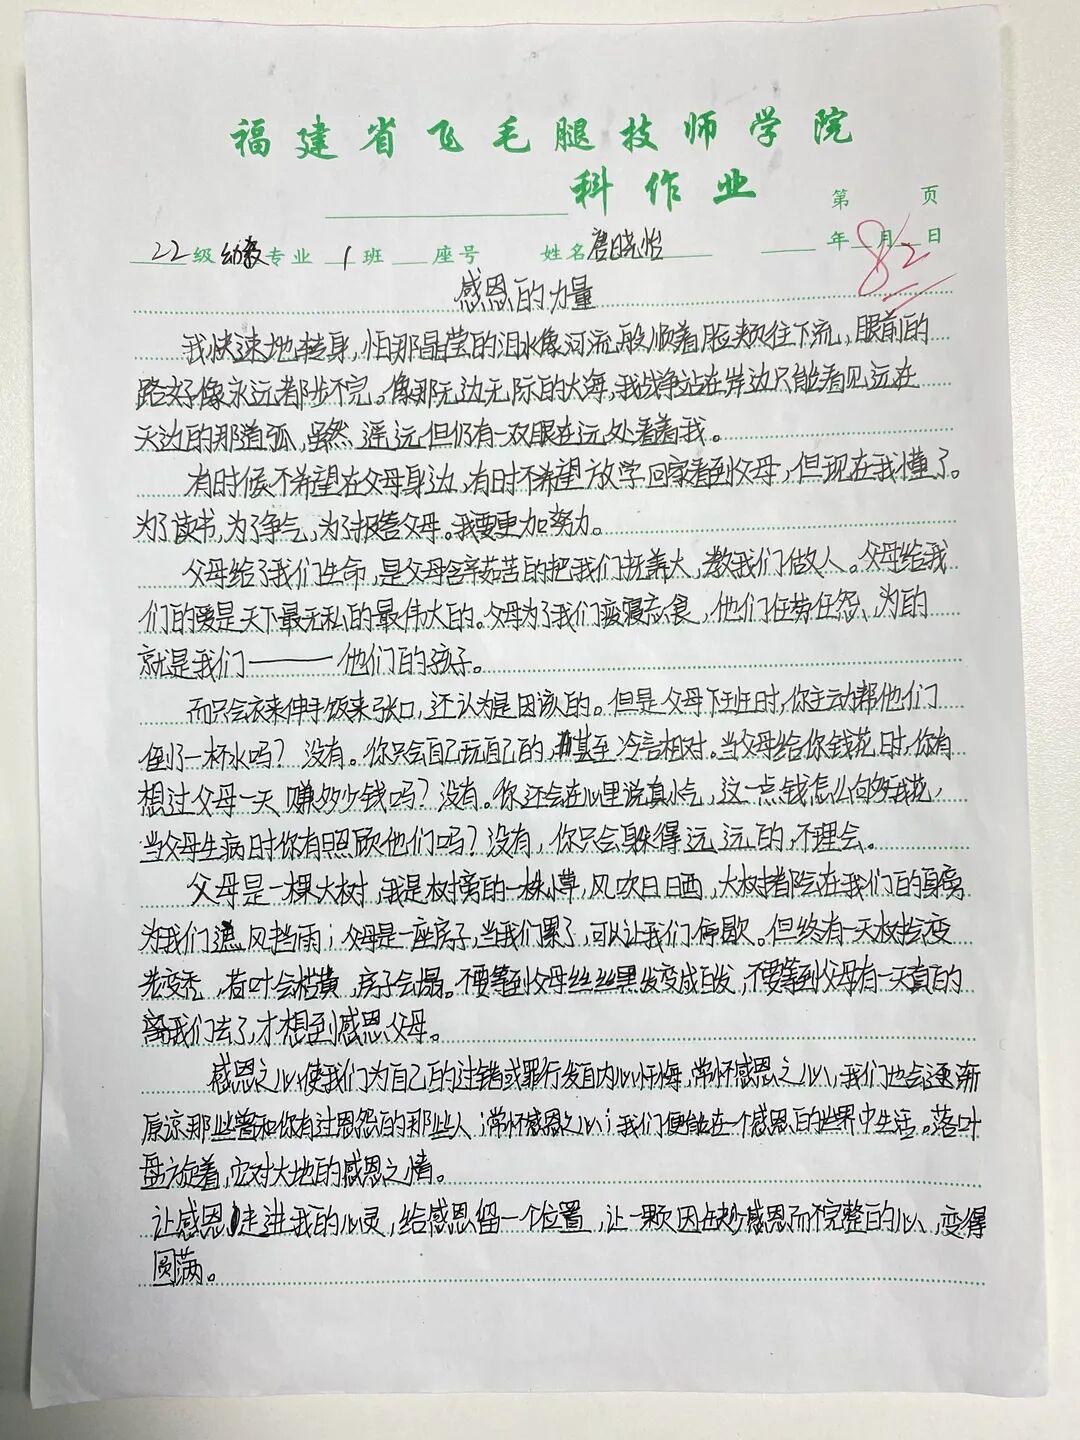 福建省飞毛腿技师学院
科作业
第 页
22级幼教专业 1班 座号 姓名 詹晓怡 年 月 日
82
感恩的力量
我快速地转身，怕那晶莹的泪水像河流般顺着脸颊往下流，眼前的
路好像永远都步不完。像那无边无际的大海，我战争站在岸边只能看见远在
天边的那道孤，虽然遥远但仍有一双眼在远处看着我。
有时候不希望在父母身边，有时不希望放学回家看到父母，但现在我懂了。
为了读书，为了争气，为了报答父母。我要更加努力。
父母给了我们生命，是父母含辛茹苦的把我们抚养大，教我们做人。父母给我
们的爱是天下最无私的最伟大的。父母为了我们废寝忘食，他们任劳任怨、为的
就是我们——他们的孩子。
而只会衣来伸手饭来张口，还认为是因该的。但是父母下班时，你主动帮他们
倒了一杯水吗？没有。你只会自己玩自己的，甚至冷言相对。当父母给你钱花时，你有
想过父母一天赚多少钱吗？没有。你还会在心里说真小气，这一点钱怎么向够我花，
当父母生病时你有照顾他们吗？没有，你只会躲得远远的，不理会。
父母是一棵大树，我是树旁的一株小草，风吹日日西，大树都陪在我们的身旁
为我们遮风挡雨；父母是一座房子，当我们累了，可以让我们停歇。但终有一天树会变
老变秃，若叶会枯黄，房子会塌。不要等到父母丝丝黑发变成白发，不要等到父母有一天真的
离我们去了，才想到感恩父母。
感恩之心使我们为自己的过错或罪行发自内心忏悔，常怀感恩之心，我们也会逐渐
原凉那些曾和你有过恩怨的那些人；常怀感恩之心；我们便能在一个感恩的世界中生活。落叶
盘旋着，它对大地的感恩之情。
让感恩走进我的心灵，给感恩留一个位置，让一颗因缺少感恩而不完整的心，变得
圆满。